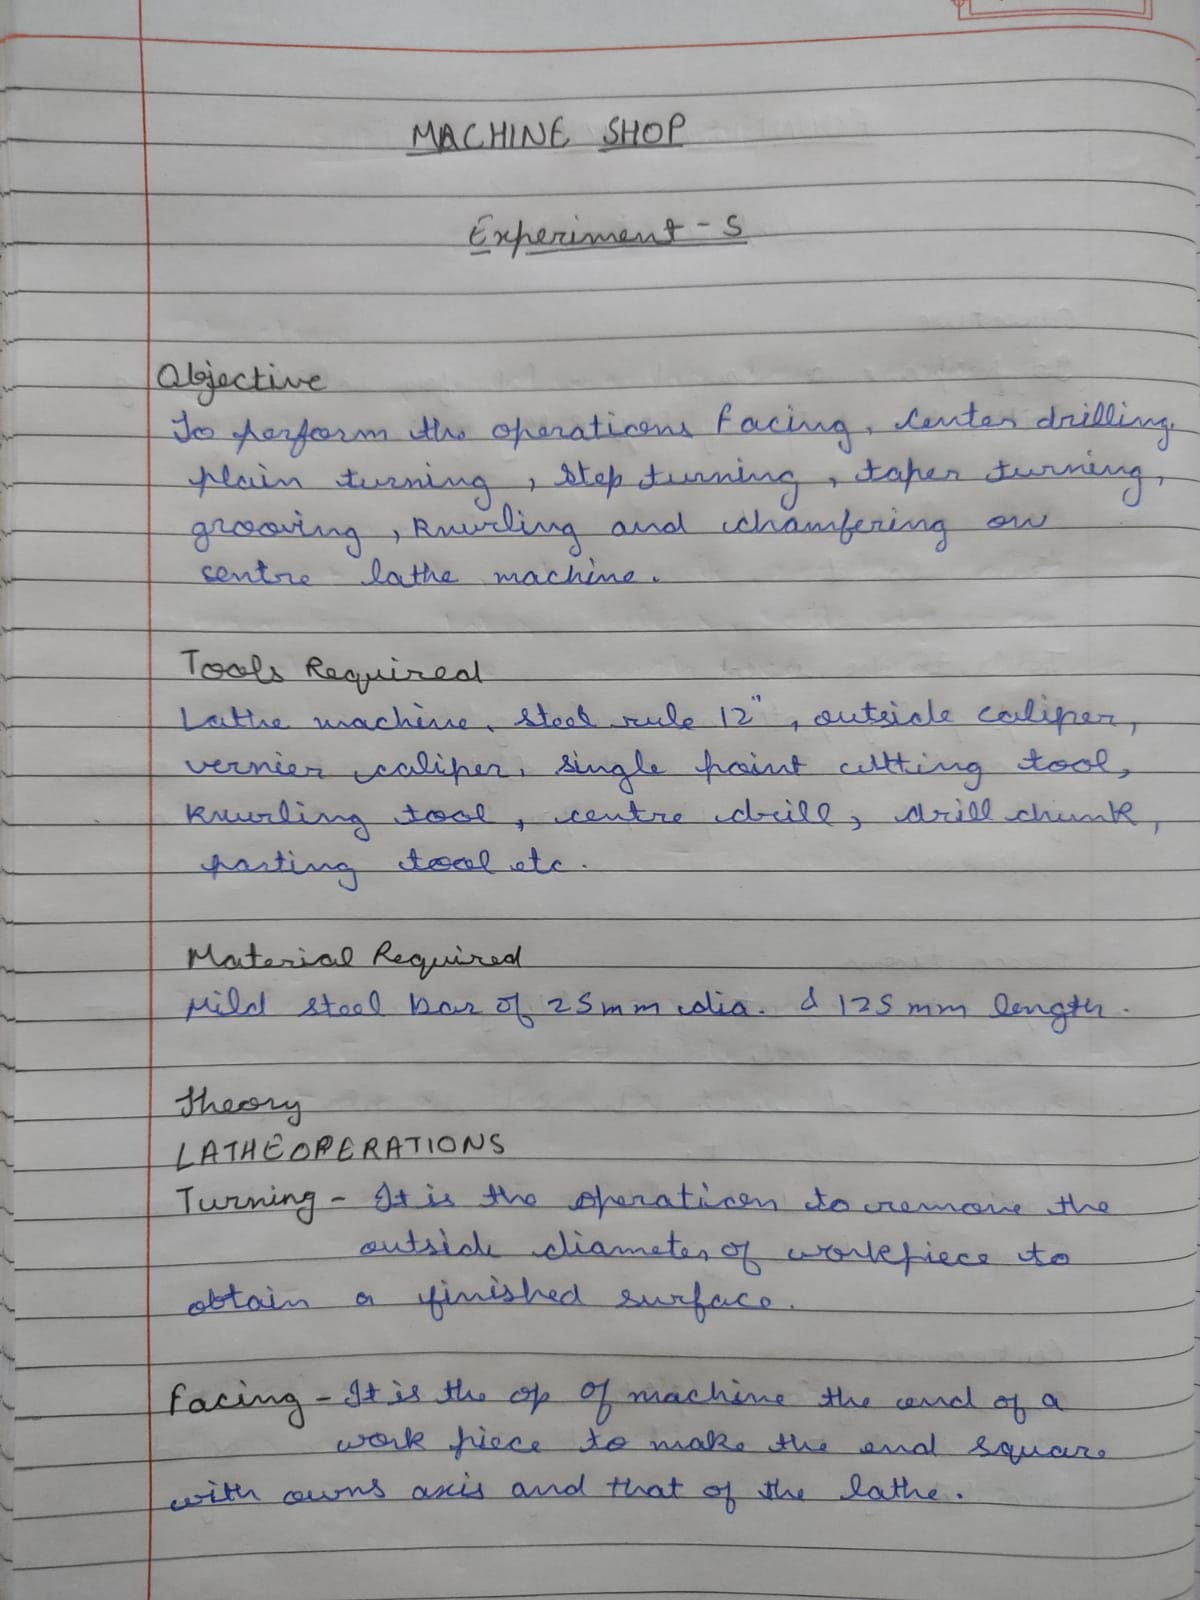 MACHINE SHOP
Experiment - 5
Objective
To perform the operations facing, center drilling,
plain turning, step turning, taper turning,
grooving, Knurling and chamfering on
centre lathe machine.
Tools Required
Lathe machine, steel rule 12", outside caliper,
vernier caliper, single point cutting tool,
Knurling tool, centre drill, drill chunk,
parting tool etc.
Material Required
Mild steel bar of 25mm dia. & 125 mm length.
Theory
LATHE OPERATIONS
Turning - It is the operation to remove the
outside diameter of workpiece to
obtain a finished surface.
Facing - It is the op of machine the end of a
work piece to make the end square
with owns axis and that of the lathe.